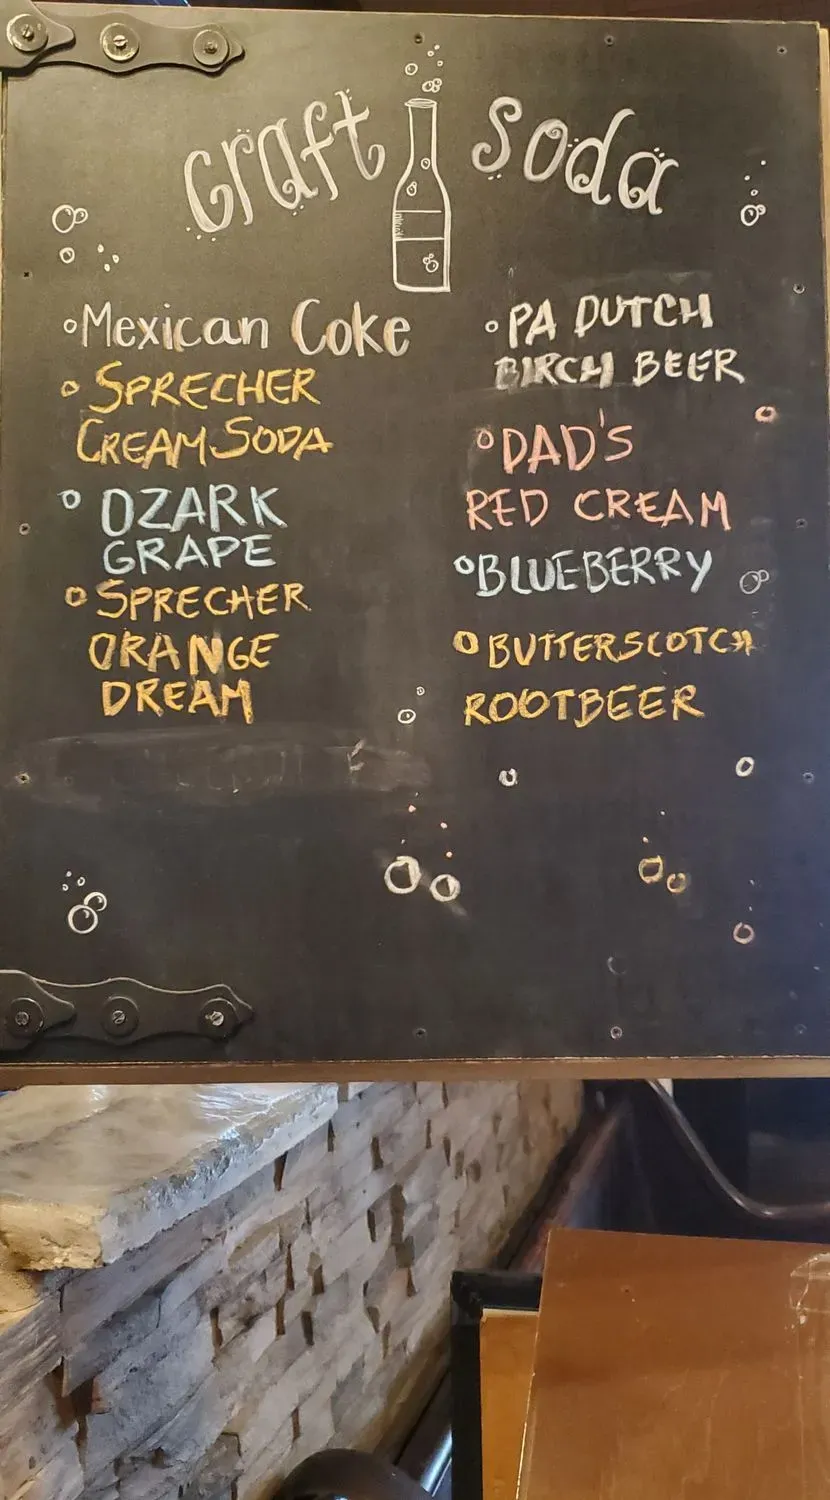 Craft Soda
Mexican Coke
SPRECHER
CREAM SODA
OZARK
GRAPE
SPRECHER
ORANGE
DREAM
PA DUTCH
BIRCH BEER
DAD'S
RED CREAM
BLUEBERRY
BUTTERSCOTCH
ROOTBEER